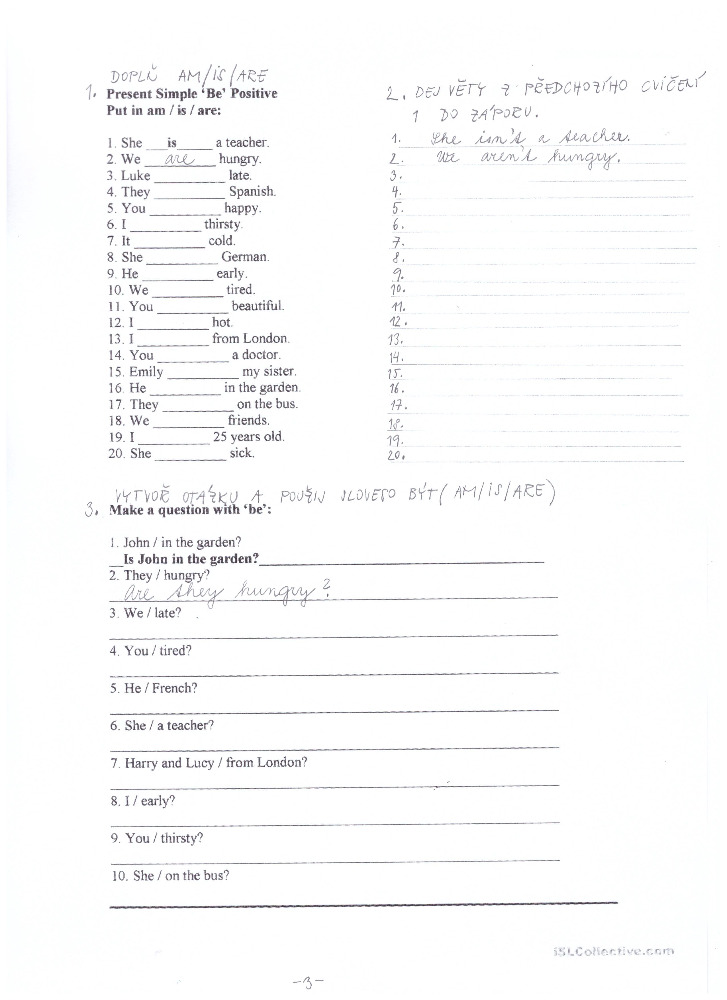 DOPLŇ AM/IS/ARE
1. Present Simple ‘Be’ Positive
Put in am / is / are:
1. She ___is___ a teacher.
2. We ___are___ hungry.
3. Luke __________ late.
4. They __________ Spanish.
5. You __________ happy.
6. I __________ thirsty.
7. It __________ cold.
8. She __________ German.
9. He __________ early.
10. We __________ tired.
11. You __________ beautiful.
12. I __________ hot.
13. I __________ from London.
14. You __________ a doctor.
15. Emily __________ my sister.
16. He __________ in the garden.
17. They __________ on the bus.
18. We __________ friends.
19. I __________ 25 years old.
20. She __________ sick.
2. DEJ VĚTY Z PŘEDCHOZÍHO CVIČENÍ
1 DO ZÁPORU.
1. She isn't a teacher.
2. We aren't hungry.
3.
4.
5.
6.
7.
8.
9.
10.
11.
12.
13.
14.
15.
16.
17.
18.
19.
20.
VYTVOŘ OTÁZKU A POUŽIJ SLOVESO BÝT (AM/IS/ARE)
3. Make a question with ‘be’:
1. John / in the garden?
Is John in the garden?
2. They / hungry?
Are they hungry?
3. We / late?
4. You / tired?
5. He / French?
6. She / a teacher?
7. Harry and Lucy / from London?
8. I / early?
9. You / thirsty?
10. She / on the bus?
iSLCollective.com
-3-